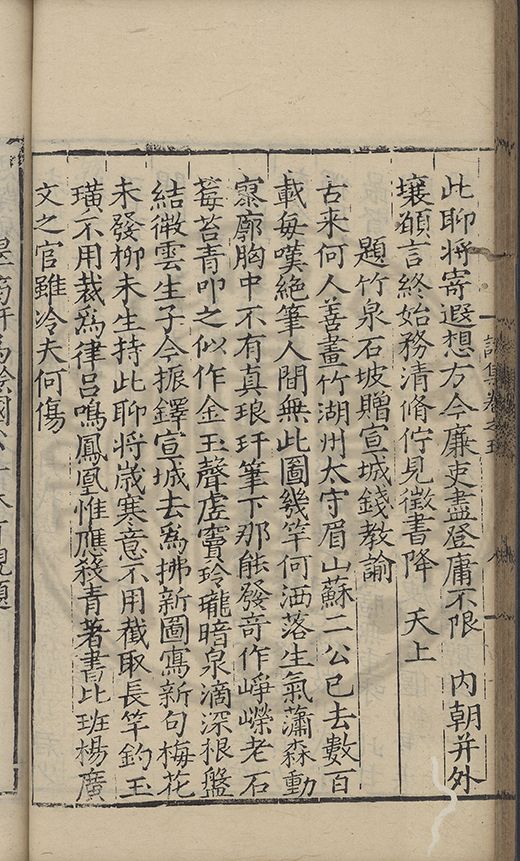 此聊將寄遐想方今廉吏盡登庸不限 內朝并外
壤願言終始務清脩佇見徵書降 天上
題竹泉石坡贈宣城錢教諭
古来何人善畫竹湖州太守眉山蘇二公已去數百
載每嘆絕筆人間無此圖幾竿何洒落生氣蕭森動
寥廓胸中不有真琅玕筆下那能發奇作崢嶸老石
莓苔青叩之似作金玉聲虛竇玲瓏暗泉滴深根盤
結微雲生子今振鐸宣城去為拂新圖寫新句梅花
未發柳未生持此聊將歲寒意不用截取長竿釣玉
璜不用裁為律呂鳴鳳凰惟應殺青著書比班楊廣
文之官雖冷夫何傷
詩集卷之